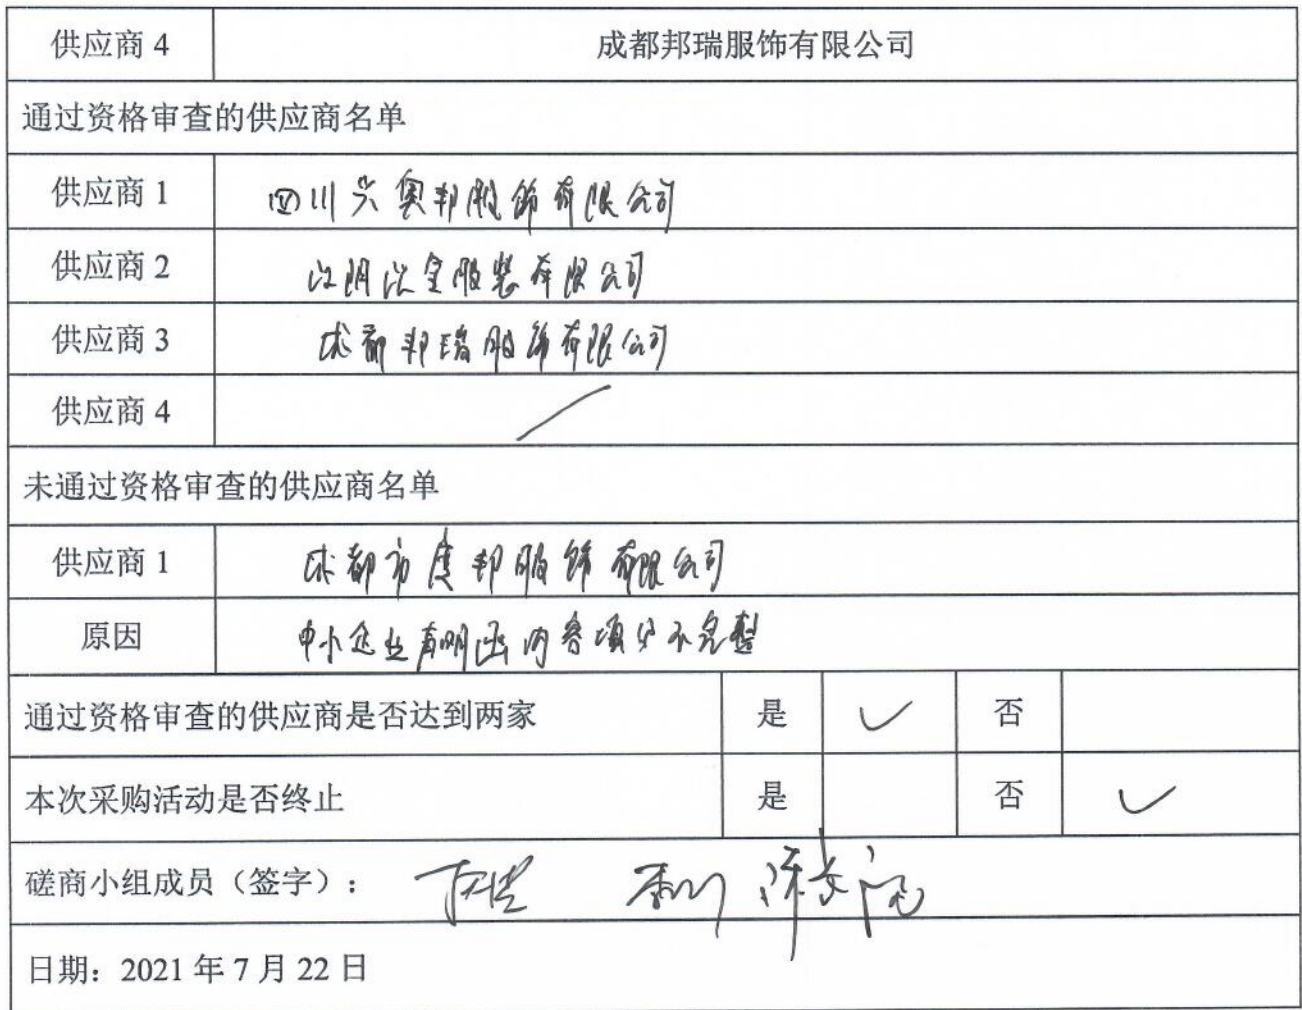 供应商 4 成都邦瑞服饰有限公司
通过资格审查的供应商名单
供应商 1 四川兴奥邦服饰有限公司
供应商 2 江阴汉全服装有限公司
供应商 3 成都邦瑞服饰有限公司
供应商 4
未通过资格审查的供应商名单
供应商 1 成都市度邦服饰有限公司
原因 中小企业声明函内容填写不完整
通过资格审查的供应商是否达到两家 是 ✓ 否
本次采购活动是否终止 是 否 ✓
磋商小组成员（签字）：
日期：2021 年 7 月 22 日